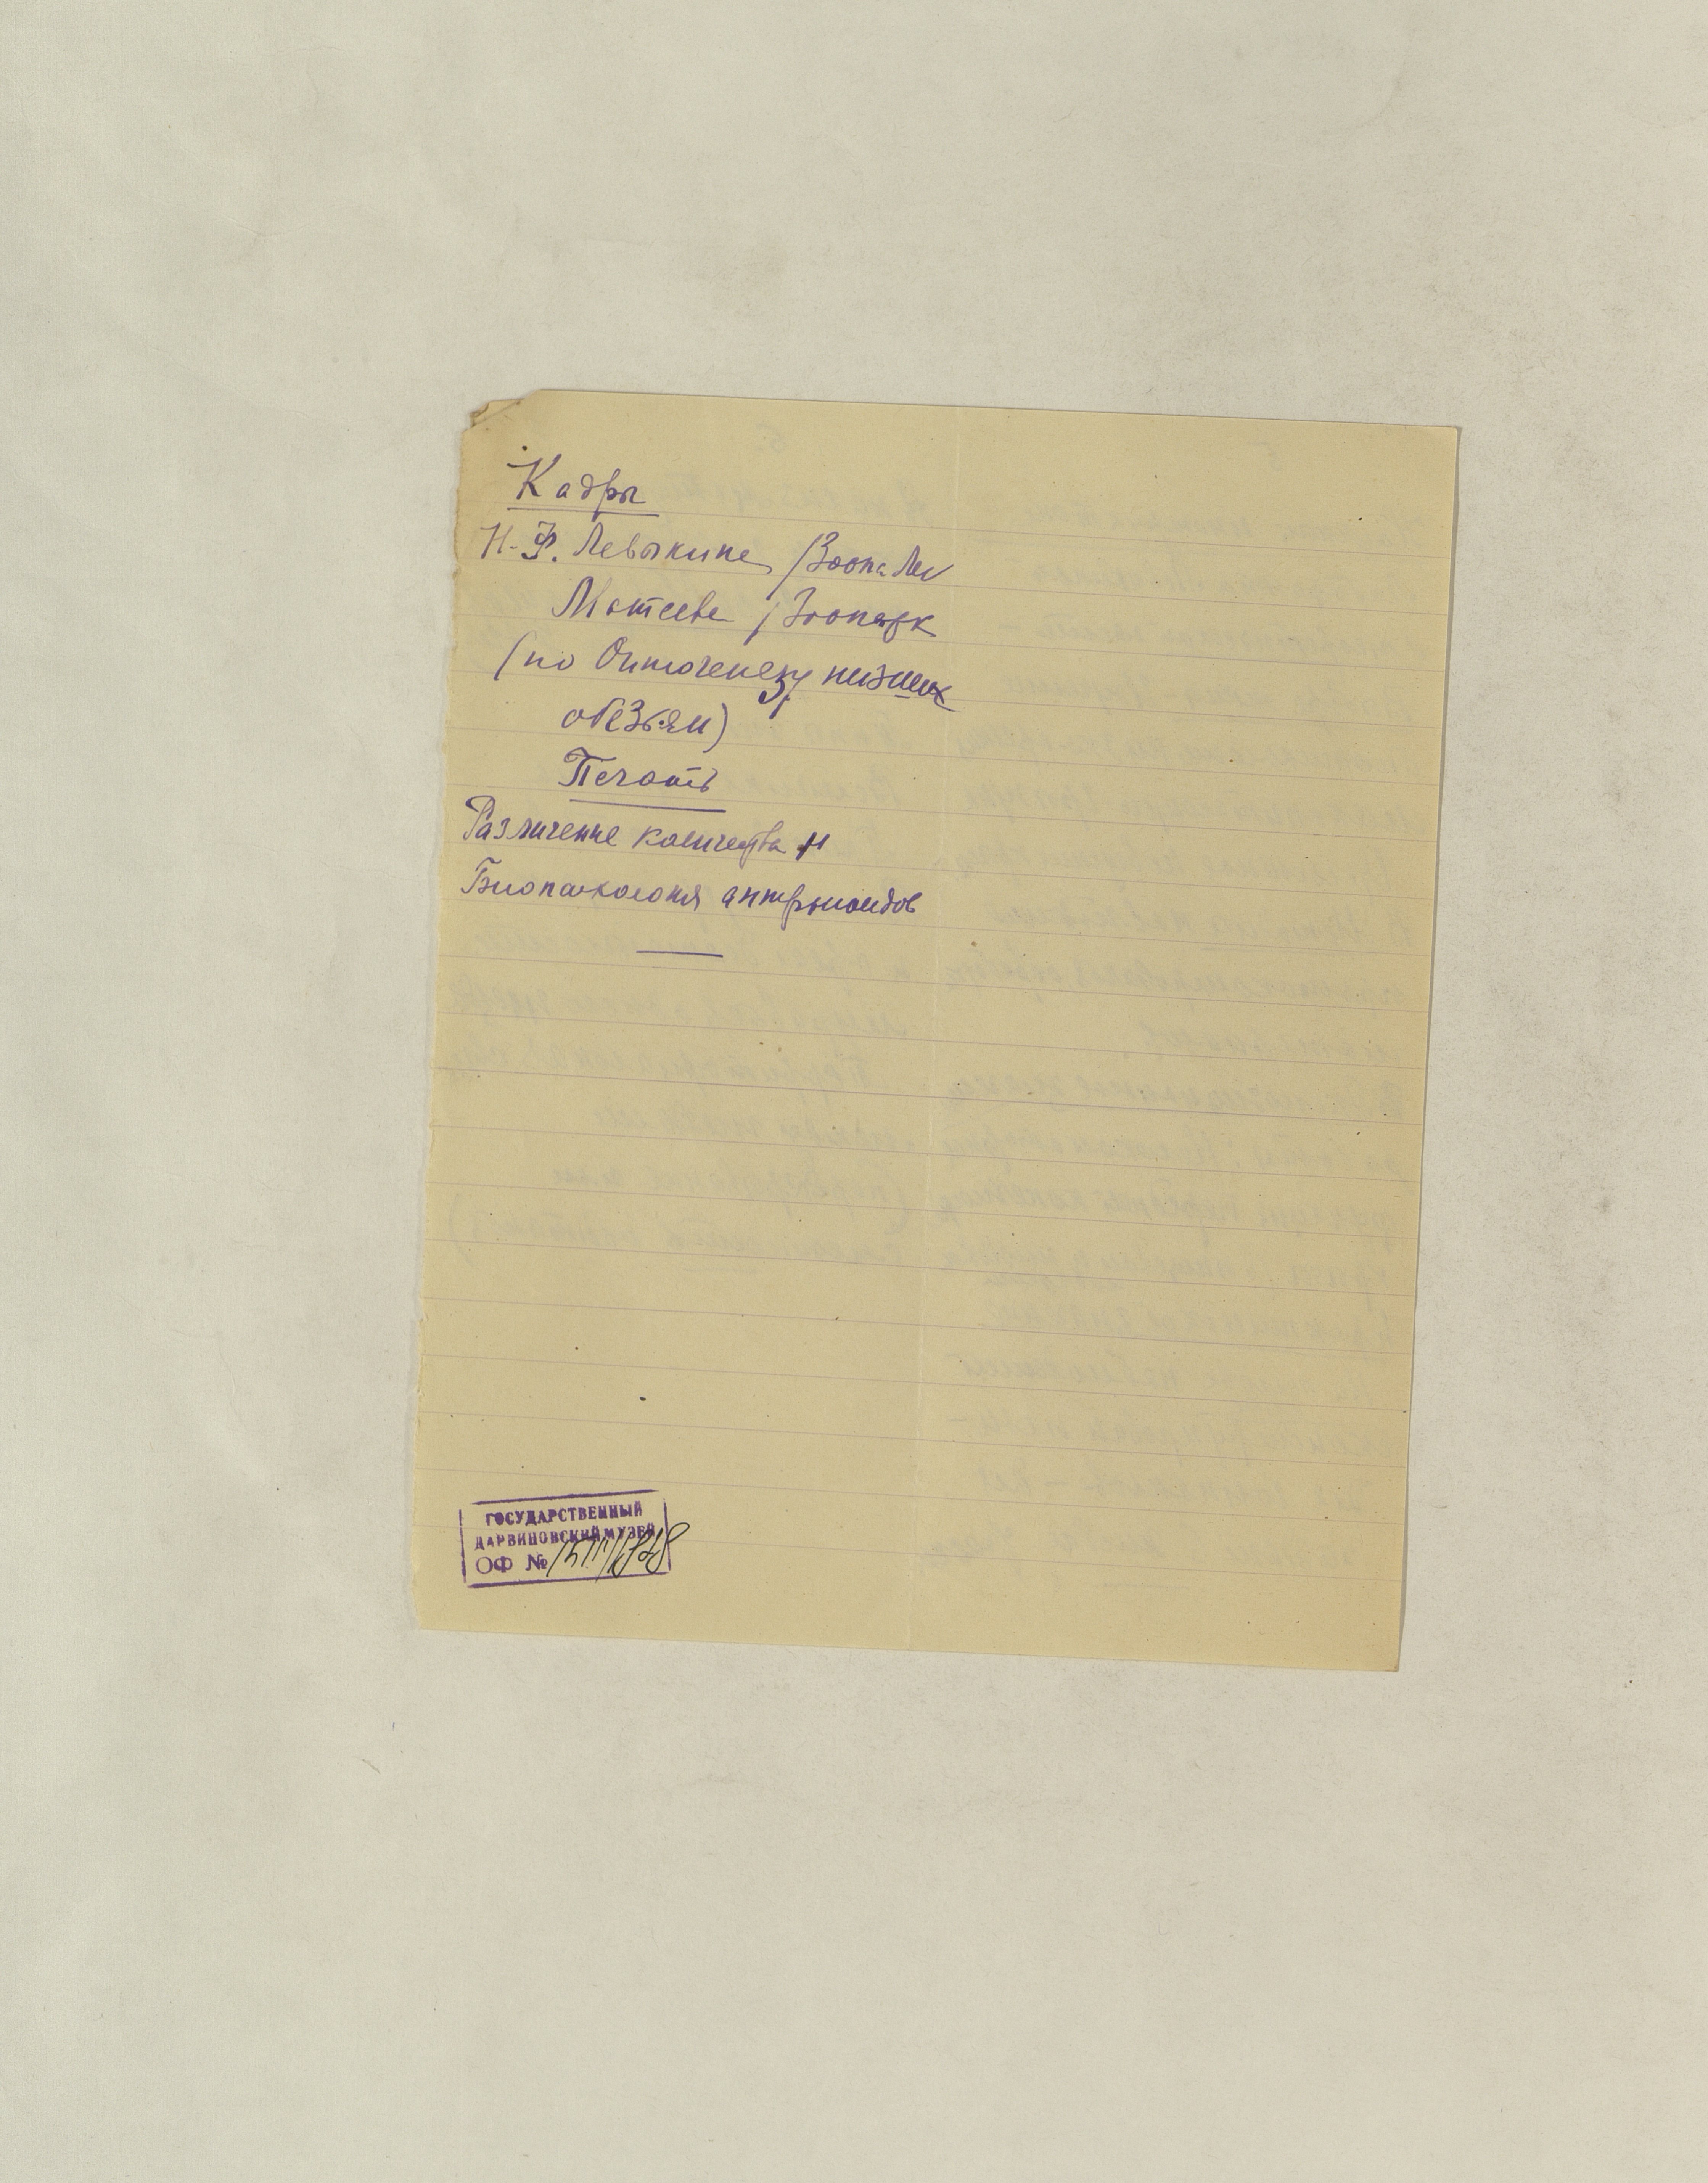 Кадры
Н. Ф. Левыкина /Зоопс
Матеева /Зоопарк
(по Онтогенезу низших
обезьян)
Печать
Различение количества и
Биопсихология антропоидов
ГОСУДАРСТВЕННЫЙ
ДАРВИНОВСКИЙ МУЗЕЙ
ОФ №